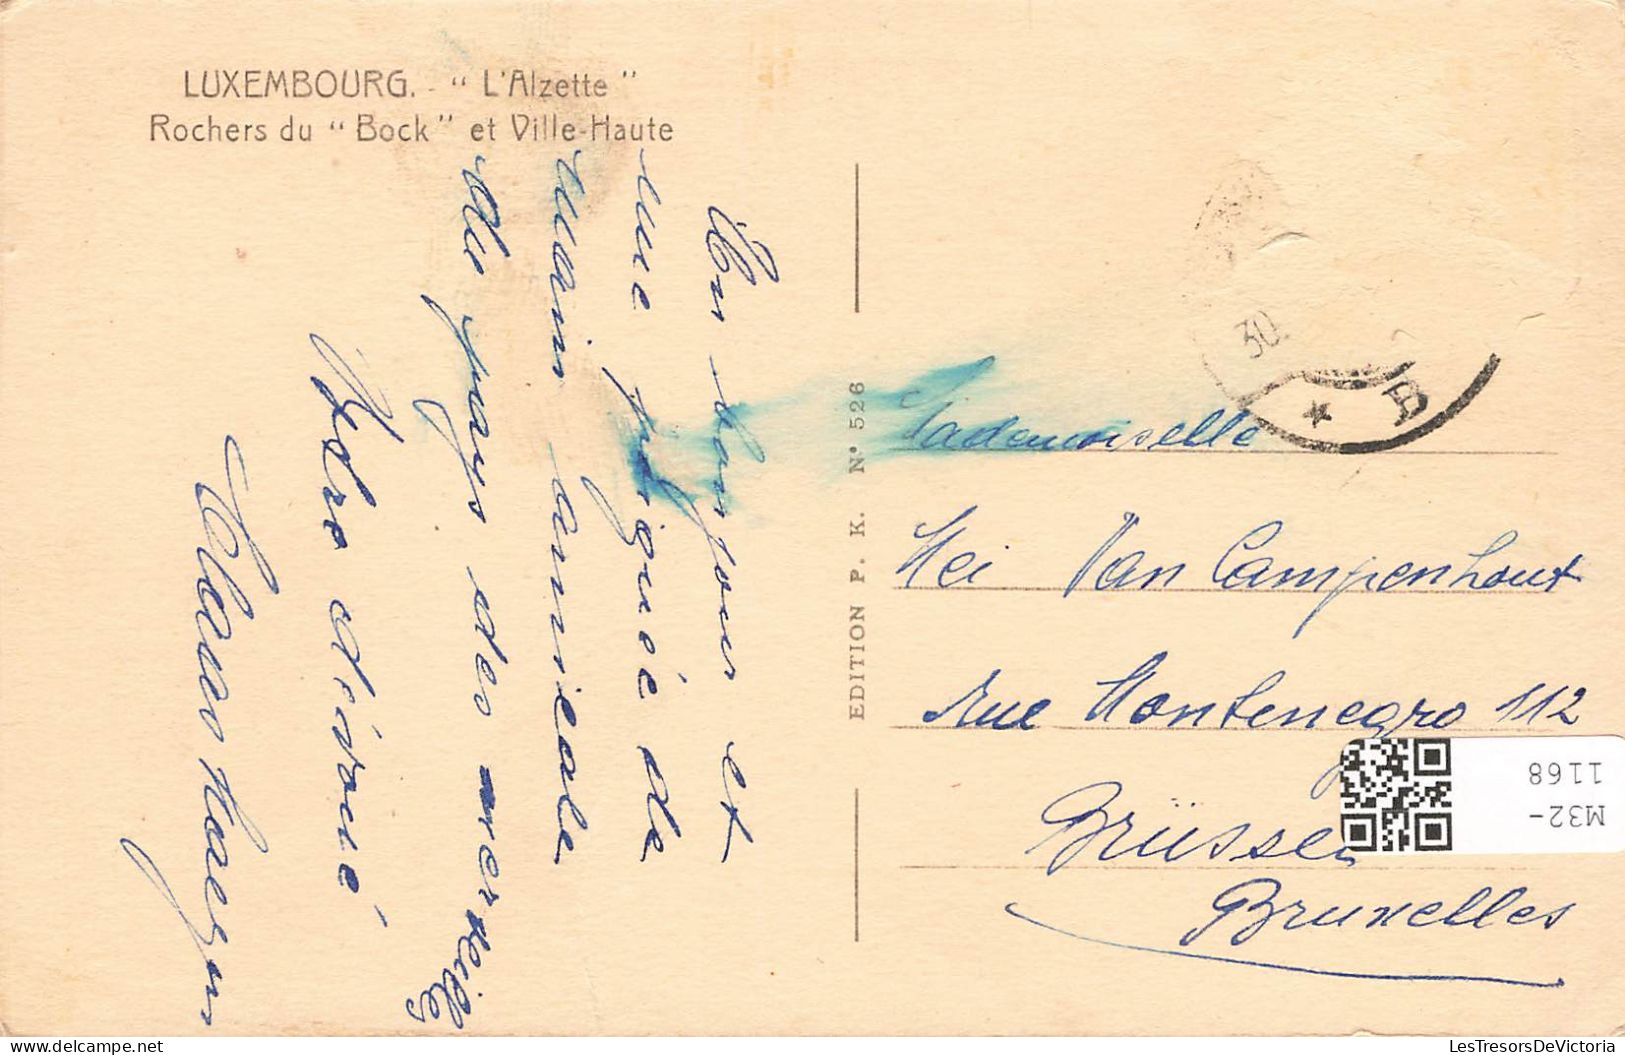 LUXEMBOURG. - "L'Alzette"
Rochers du "Bock" et Ville-Haute
Un bonjour et
une poignée de
main amicale
du pays des merveilles
Votre dévoué
EDITION P. K. N° 526
30.
* B
Mademoiselle
Mei Van Campenhout
Rue Montenegro 112
Brüssel
Bruxelles
M32-
1168
LesTresorsDeVictoria